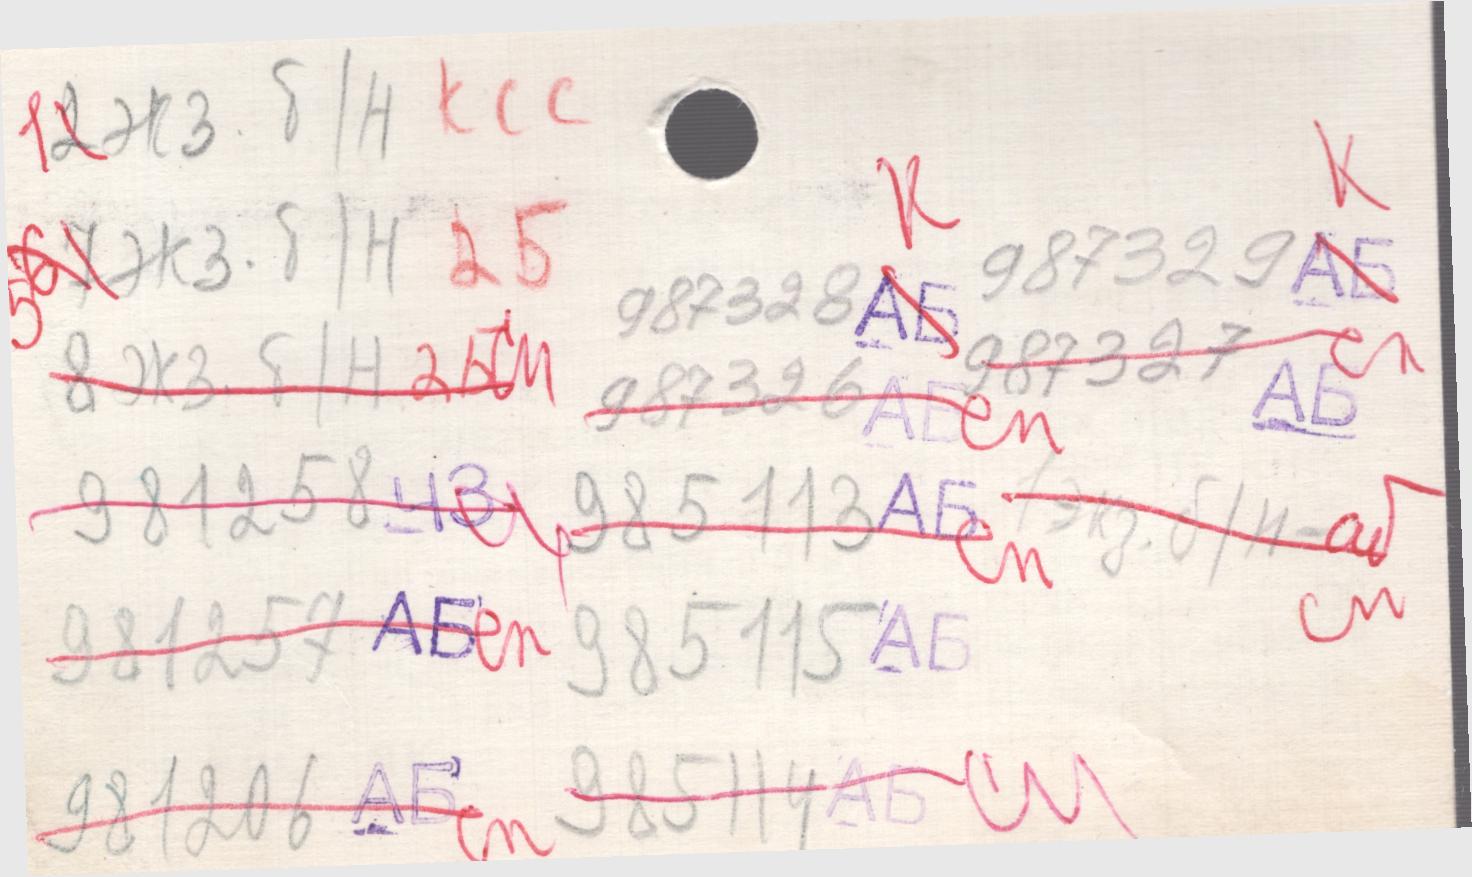 12 экз. б/н ксс
7 экз. б/н 2Б
56
К
К
987328 АБ
987329 АБ
8 экз. б/н 2Б сп
987326 АБ сп
987327 АБ сп
981258 ЧЗ
985113 АБ сп
1 экз. б/н - аб сп
981257 АБ сп
985115 АБ
981206 АБ сп
985114 АБ сп